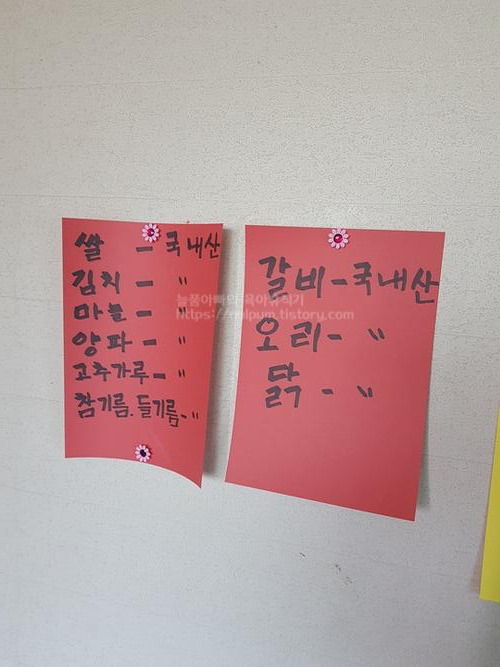 쌀 - 국내산
김치 - 〃
마늘 - 〃
양파 - 〃
고추가루 - 〃
참기름. 들기름 - 〃
갈비 - 국내산
오리 - 〃
닭 - 〃
늘품아빠의 육아휴직기
https://nulpum.tistory.com